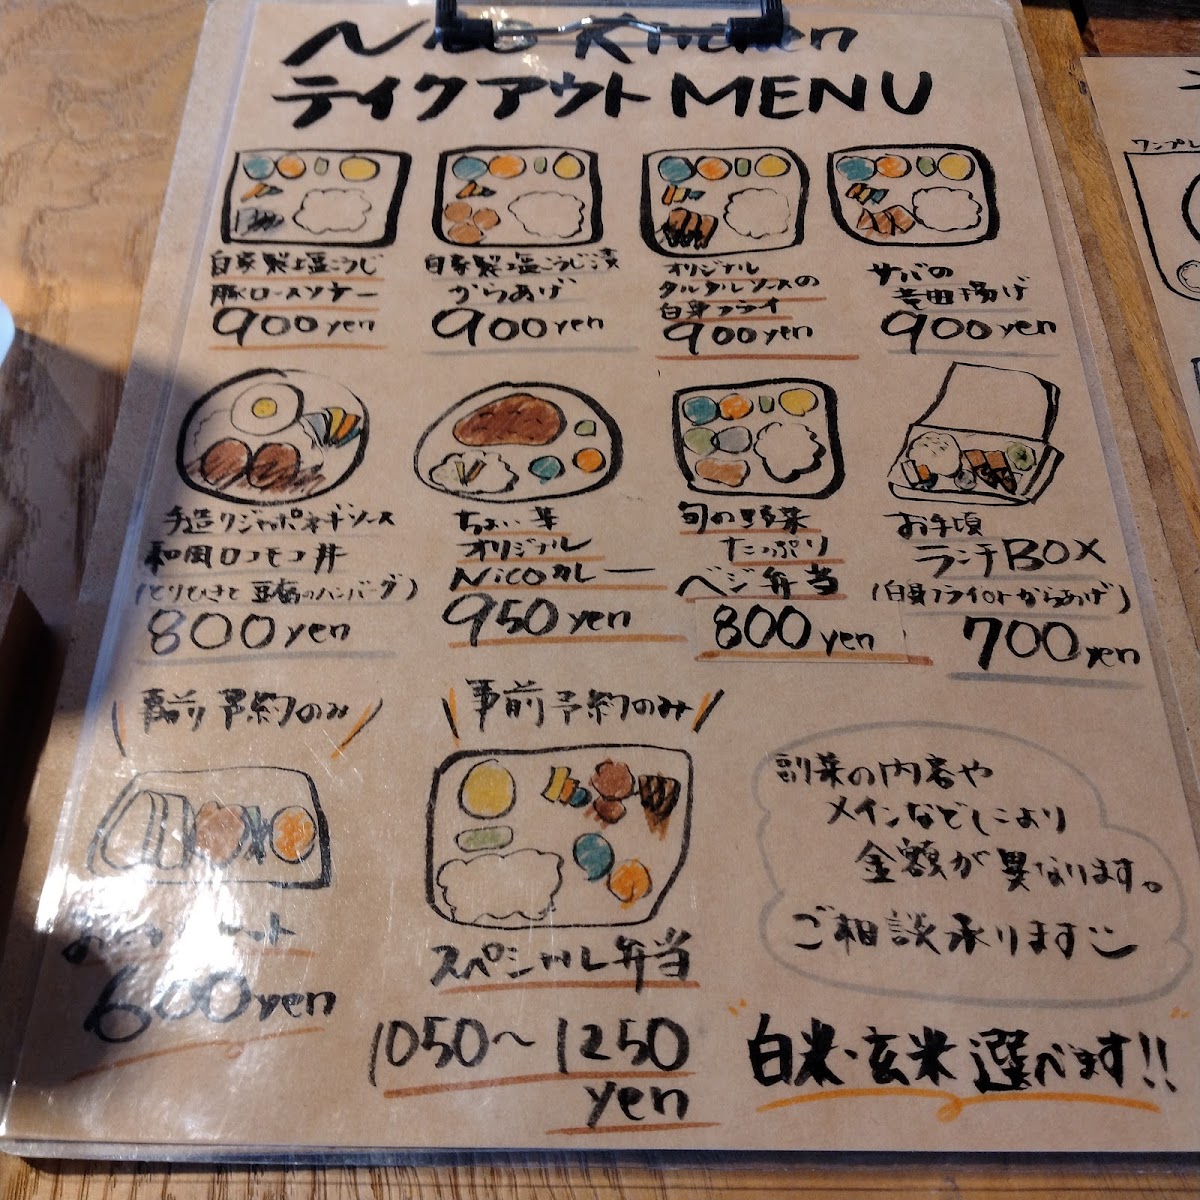 Nico Kitchen
テイクアウトMENU
自家製塩こうじ
豚ロースソテー
900yen
自家製塩こうじ漬
からあげ
900yen
オリジナル
タルタルソースの
白身フライ
900yen
サバの
竜田揚げ
900yen
手造りジャポネギソース
和風ロコモコ丼
(とりひきと豆腐のハンバーグ)
800yen
ちょい辛
オリジナル
Nicoカレー
950yen
旬の野菜
たっぷり
ベジ弁当
800yen
お手頃
ランチBOX
(白身フライorからあげ)
700yen
事前予約のみ
600yen
事前予約のみ
スペシャル弁当
1050〜1250
yen
副菜の内容や
メインなどにより
金額が異なります。
ご相談承ります
白米・玄米選べます!!
ワンプレ